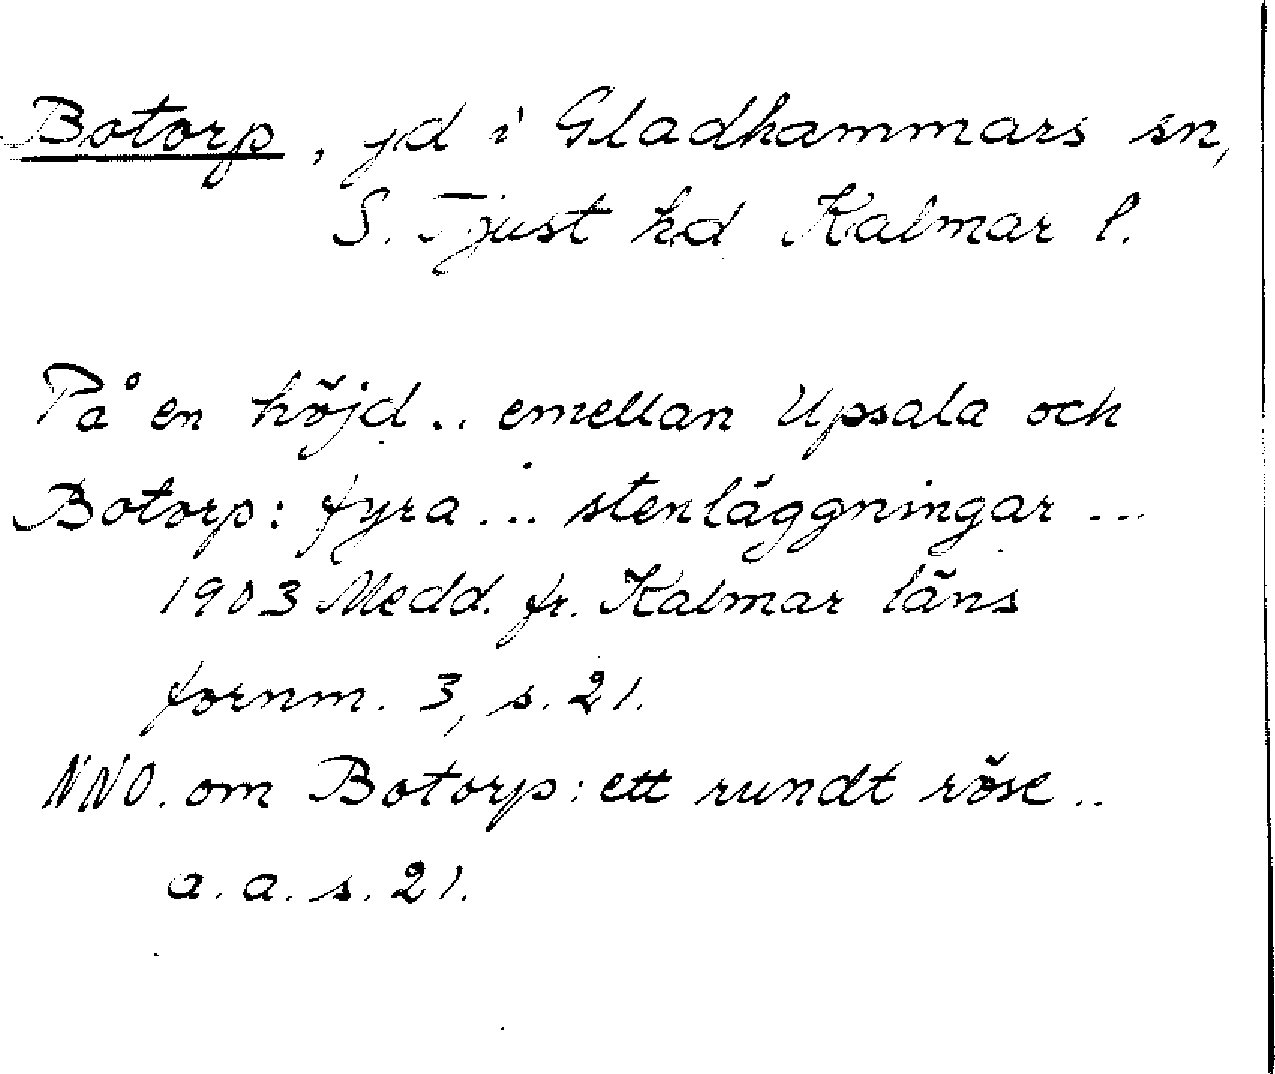 Botorp, jd i Gladhammars sn,
S. Tjust hd Kalmar l.
På en höjd .. emellan Upsala och
Botorp: fyra ... stenläggningar ...
1903 Medd. fr. Kalmar läns
fornm. 3, s. 21.
NNO. om Botorp: ett rundt röse ..
a. a. s. 21.